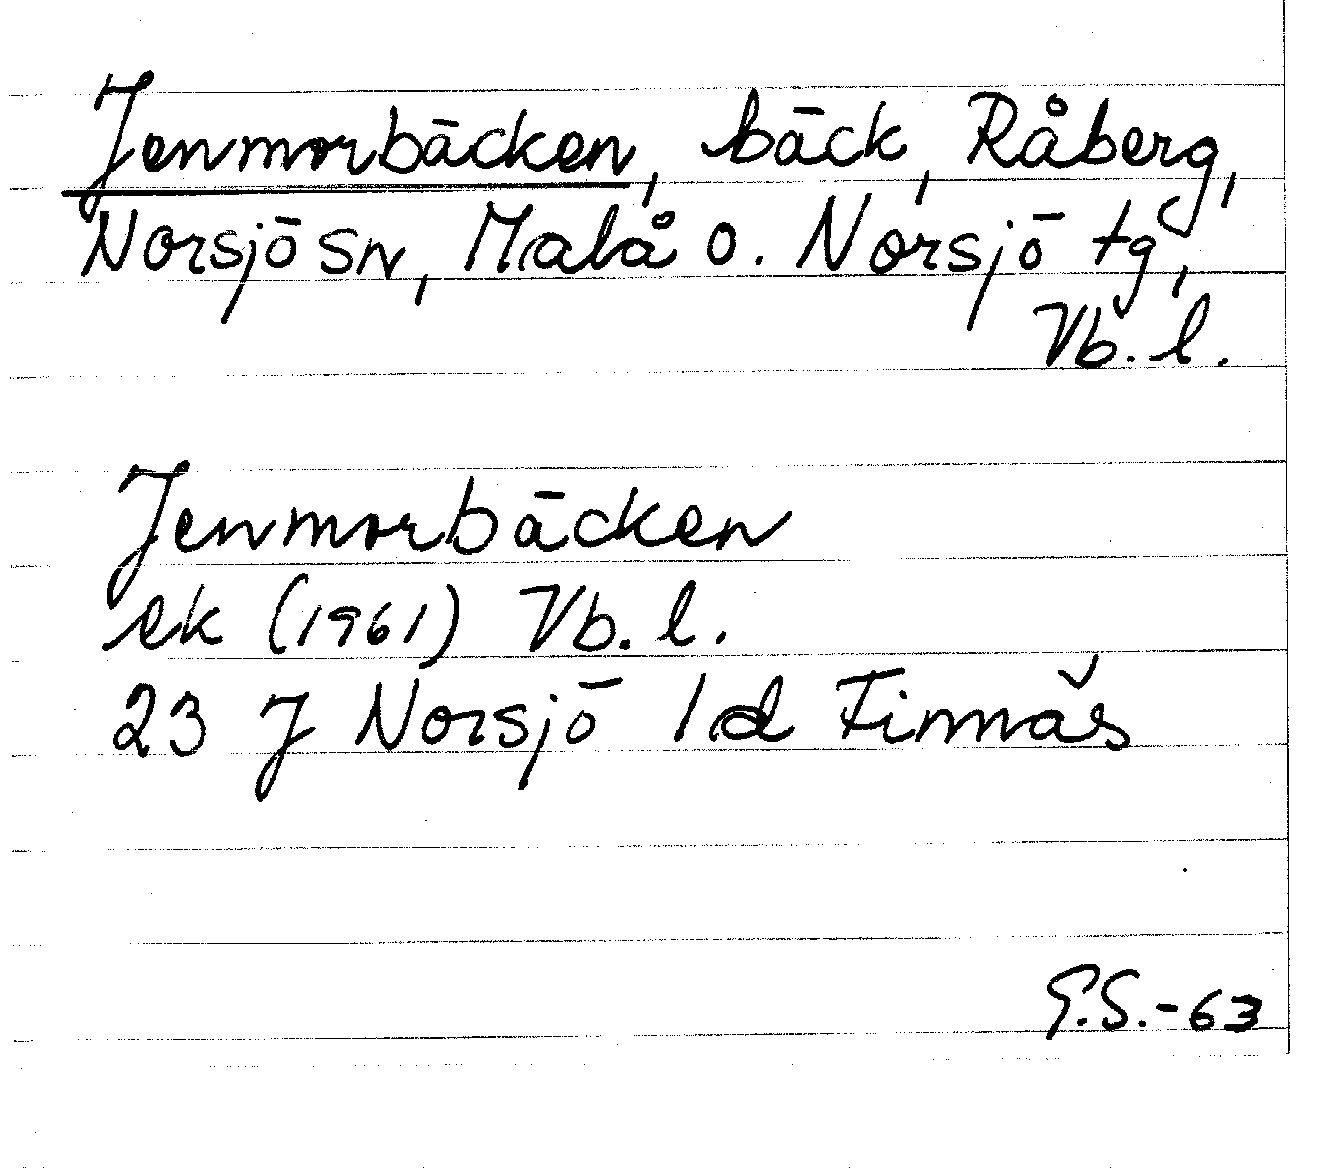 Jenmorbäcken, bäck, Råberg,
Norsjö sn, Malå o. Norsjö tg,
Vb. l.
Jenmorbäcken
ek (1961) Vb. l.
23 J Norsjö 1 d Finnäs
G.S.-63